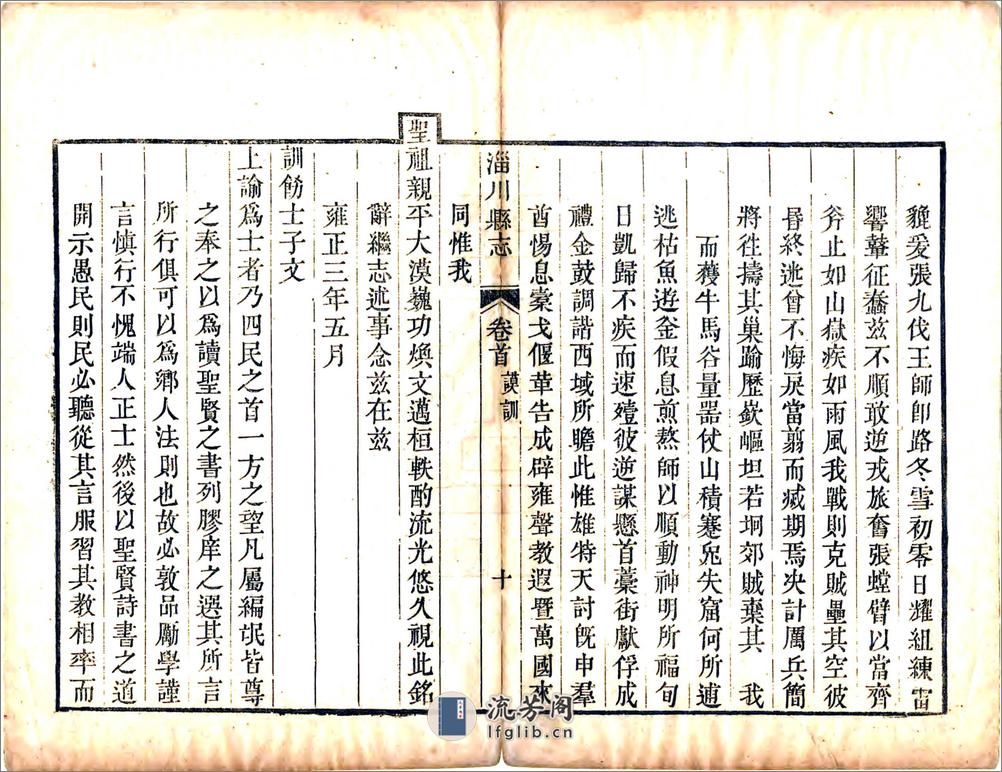 貔爰張九伐王師卽路冬雪初零日耀組練雷
響鼙征蠢茲不順敢逆戎旅奮張螳臂以當齊
斧止如山嶽疾如雨風我戰則克賊壘其空彼
昬終逃曾不悔戾當翦而滅期焉決計厲兵簡
將徃擣其巢踰歷嶔嶇坦若坰郊賊棄其　我
而獲牛馬谷量器仗山積蹇兎失窟何所逋
逃枯魚遊釡假息煎熬師以順動神明所福旬
日凱歸不疾而速殪彼逆謀懸首藁街獻俘成
禮金鼓調諧西域所瞻此惟雄特天討旣申羣
酋惕息橐戈偃革告成辟雍聲教遐曁萬國來
淄川縣志
卷首
謨訓
十
同惟我
聖祖親平大漠巍功煥文邁桓軼酌流光悠久視此銘
辭繼志述事念茲在茲
雍正三年五月
訓飭士子文
上諭爲士者乃四民之首一方之望凡屬編氓皆尊
之奉之以爲讀聖賢之書列膠庠之選其所言
所行俱可以爲鄉人法則也故必敦品勵學謹
言愼行不愧端人正士然後以聖賢詩書之道
開示愚民則民必聽從其言服習其教相率而
流芳阁
lfglib.cn